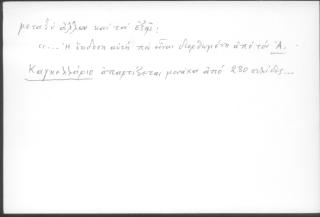 μεταξύ ἄλλων καὶ τὰ ἑξῆς:
«... Ἡ ἔκδοση αὐτὴ ποὺ εἶναι διορθωμένη ἀπὸ τὸν Ἀ.
Καγκελλάριο ἀπαρτίζεται μονάχα ἀπὸ 230 σελίδες...